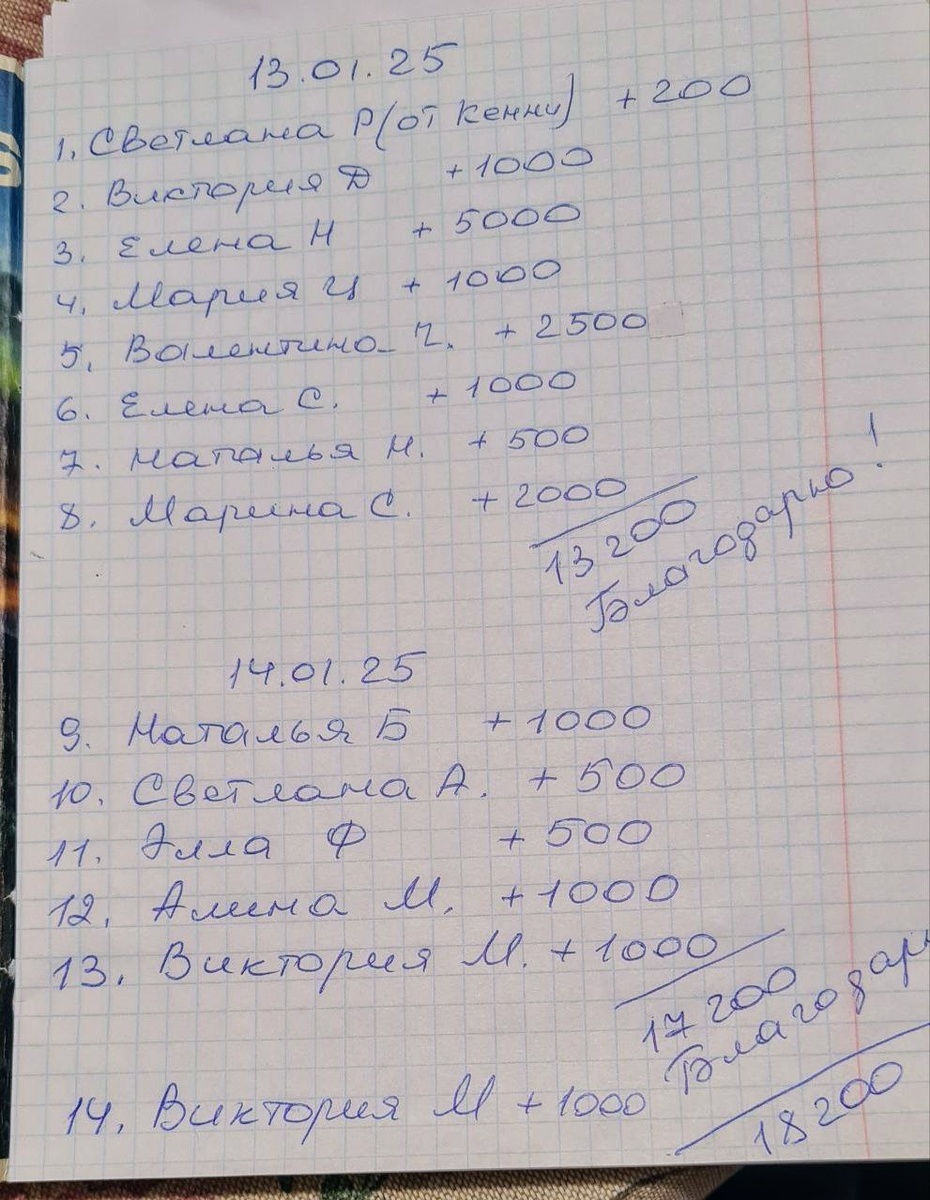 13.01.25
1. Светлана Р (от Кенни) +200
2. Виктория Д +1000
3. Елена Н + 5000
4. Мария Ц + 1000
5. Валентина Ч. + 2500
6. Елена С. + 1000
7. Наталья Н. + 500
8. Марина С. + 2000
13200
Благодарю!
14.01.25
9. Наталья Б + 1000
10. Светлана А. + 500
11. Элла Ф + 500
12. Алина М. +1000
13. Виктория М. + 1000
17200
Благодар
14. Виктория М +1000
18200